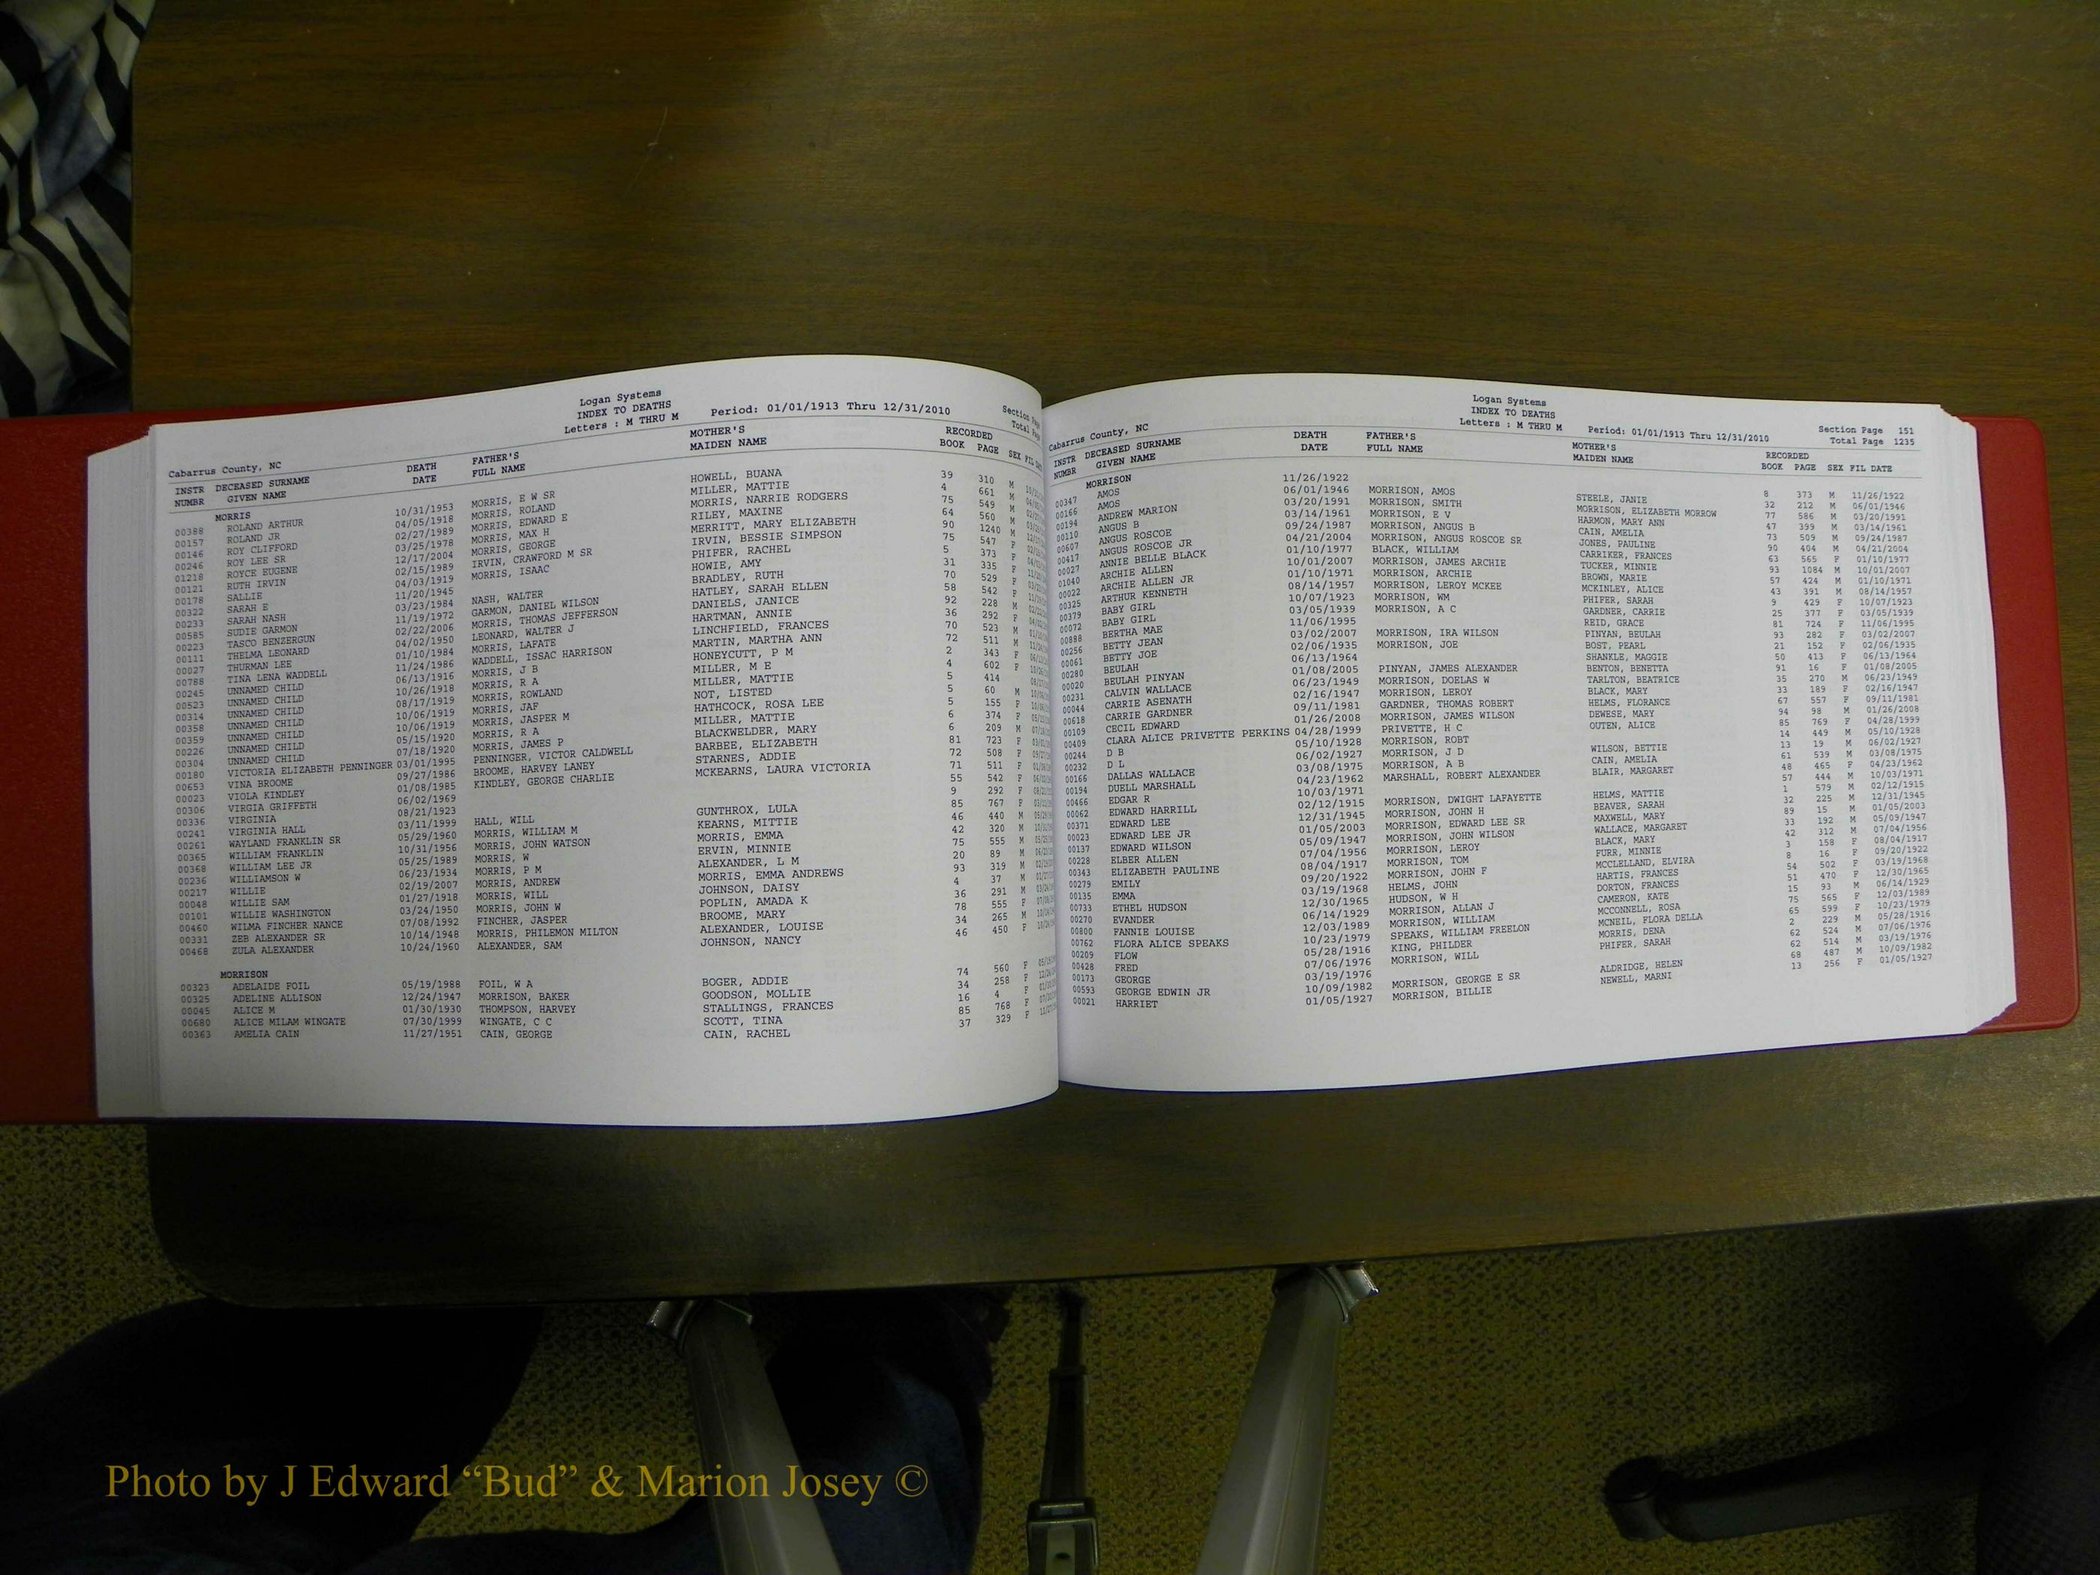 Logan Systems
INDEX TO DEATHS
Letters : M THRU M Period: 01/01/1913 Thru 12/31/2010
Section Page
Total Page
Cabarrus County, NC
INSTR DECEASED SURNAME DEATH FATHER'S MOTHER'S RECORDED
NUMBR GIVEN NAME DATE FULL NAME MAIDEN NAME BOOK PAGE SEX FIL DATE
MORRIS
00388 ROLAND ARTHUR 10/31/1953 MORRIS, E W SR HOWELL, BUANA 39 310 M
00157 ROLAND JR 04/05/1918 MORRIS, ROLAND MILLER, MATTIE 4 661 M
00146 ROY CLIFFORD 02/27/1989 MORRIS, EDWARD E MORRIS, NARRIE RODGERS 75 549 M
00246 ROY LEE SR 03/25/1978 MORRIS, MAX H RILEY, MAXINE 64 560 M
01218 ROYCE EUGENE 12/17/2004 MORRIS, GEORGE MERRITT, MARY ELIZABETH 90 1240 M
00121 RUTH IRVIN 02/15/1989 IRVIN, CRAWFORD M SR IRVIN, BESSIE SIMPSON 75 547 F
00178 SALLIE 04/03/1919 MORRIS, ISAAC PHIFER, RACHEL 5 373 F
00322 SARAH E 11/20/1945 HOWIE, AMY 31 335 F
00233 SARAH NASH 03/23/1984 NASH, WALTER BRADLEY, RUTH 70 529 F
00585 SUDIE GARMON 11/19/1972 GARMON, DANIEL WILSON HATLEY, SARAH ELLEN 58 542 F
00223 TASCO BENZERGUN 02/22/2006 MORRIS, THOMAS JEFFERSON DANIELS, JANICE 92 228 M
00111 THELMA LEONARD 04/02/1950 LEONARD, WALTER J HARTMAN, ANNIE 36 292 F
00027 THURMAN LEE 01/10/1984 MORRIS, LAFATE LINCHFIELD, FRANCES 70 523 M
00788 TINA LENA WADDELL 11/24/1986 WADDELL, ISSAC HARRISON MARTIN, MARTHA ANN 72 511 F
00245 UNNAMED CHILD 06/13/1916 MORRIS, J B HONEYCUTT, P M 2 343 F
00523 UNNAMED CHILD 10/26/1918 MORRIS, R A MILLER, M E 4 602 F
00314 UNNAMED CHILD 08/17/1919 MORRIS, ROWLAND MILLER, MATTIE 5 414
00358 UNNAMED CHILD 10/06/1919 MORRIS, JAF NOT, LISTED 5 60 M
00359 UNNAMED CHILD 10/06/1919 MORRIS, JASPER M HATHCOCK, ROSA LEE 5 155 F
00226 UNNAMED CHILD 05/15/1920 MORRIS, R A MILLER, MATTIE 6 374 F
00304 UNNAMED CHILD 07/18/1920 MORRIS, JAMES P BLACKWELDER, MARY 6 209 M
00180 VICTORIA ELIZABETH PENNINGER 03/01/1995 PENNINGER, VICTOR CALDWELL BARBEE, ELIZABETH 81 723 F
00653 VINA BROOME 09/27/1986 BROOME, HARVEY LANEY STARNES, ADDIE 72 508 F
00023 VIOLA KINDLEY 01/08/1985 KINDLEY, GEORGE CHARLIE MCKEARNS, LAURA VICTORIA 71 511 F
00306 VIRGIA GRIFFETH 06/02/1969 55 542 F
00336 VIRGINIA 08/21/1923 9 292 F
00241 VIRGINIA HALL 03/11/1999 HALL, WILL GUNTHROX, LULA 85 767 F
00261 WAYLAND FRANKLIN SR 05/29/1960 MORRIS, WILLIAM M KEARNS, MITTIE 46 440 M
00365 WILLIAM FRANKLIN 10/31/1956 MORRIS, JOHN WATSON MORRIS, EMMA 42 320 M
00368 WILLIAM LEE JR 05/25/1989 MORRIS, W ERVIN, MINNIE 75 555 M
00236 WILLIAMSON W 06/23/1934 MORRIS, P M ALEXANDER, L M 20 89 M
00217 WILLIE 02/19/2007 MORRIS, ANDREW MORRIS, EMMA ANDREWS 93 319 M
00048 WILLIE SAM 01/27/1918 MORRIS, WILL JOHNSON, DAISY 4 37 M
00101 WILLIE WASHINGTON 03/24/1950 MORRIS, JOHN W POPLIN, AMADA K 36 291 M
00460 WILMA FINCHER NANCE 07/08/1992 FINCHER, JASPER BROOME, MARY 78 555 F
00331 ZEB ALEXANDER SR 10/14/1948 MORRIS, PHILEMON MILTON ALEXANDER, LOUISE 34 265 M
00468 ZULA ALEXANDER 10/24/1960 ALEXANDER, SAM JOHNSON, NANCY 46 450 F
MORRISON
00323 ADELAIDE FOIL 05/19/1988 FOIL, W A BOGER, ADDIE 74 560 F
00325 ADELINE ALLISON 12/24/1947 MORRISON, BAKER GOODSON, MOLLIE 34 258 F
00045 ALICE M 01/30/1930 THOMPSON, HARVEY STALLINGS, FRANCES 16 4 F
00680 ALICE MILAM WINGATE 07/30/1999 WINGATE, C C SCOTT, TINA 85 768 F
00363 AMELIA CAIN 11/27/1951 CAIN, GEORGE CAIN, RACHEL 37 329 F
Logan Systems
INDEX TO DEATHS
Letters : M THRU M Period: 01/01/1913 Thru 12/31/2010
Section Page 151
Total Page 1235
Cabarrus County, NC
INSTR DECEASED SURNAME DEATH FATHER'S MOTHER'S RECORDED
NUMBR GIVEN NAME DATE FULL NAME MAIDEN NAME BOOK PAGE SEX FIL DATE
MORRISON
00347 AMOS 11/26/1922 8 373 M 11/26/1922
00166 AMOS 06/01/1946 MORRISON, AMOS STEELE, JANIE 32 212 M 06/01/1946
00194 ANDREW MARION 03/20/1991 MORRISON, SMITH MORRISON, ELIZABETH MORROW 77 586 M 03/20/1991
00110 ANGUS B 03/14/1961 MORRISON, E V HARMON, MARY ANN 47 399 M 03/14/1961
00607 ANGUS ROSCOE 09/24/1987 MORRISON, ANGUS B CAIN, AMELIA 73 509 M 09/24/1987
00417 ANGUS ROSCOE JR 04/21/2004 MORRISON, ANGUS ROSCOE SR JONES, PAULINE 90 404 M 04/21/2004
00027 ANNIE BELLE BLACK 01/10/1977 BLACK, WILLIAM CARRIKER, FRANCES 63 565 F 01/10/1977
01040 ARCHIE ALLEN 10/01/2007 MORRISON, JAMES ARCHIE TUCKER, MINNIE 93 1084 M 10/01/2007
00022 ARCHIE ALLEN JR 01/10/1971 MORRISON, ARCHIE BROWN, MARIE 57 424 M 01/10/1971
00325 ARTHUR KENNETH 08/14/1957 MORRISON, LEROY MCKEE MCKINLEY, ALICE 43 391 M 08/14/1957
00379 BABY GIRL 10/07/1923 MORRISON, WM PHIFER, SARAH 9 429 F 10/07/1923
00072 BABY GIRL 03/05/1939 MORRISON, A C GARDNER, CARRIE 25 377 F 03/05/1939
00888 BERTHA MAE 11/06/1995 REID, GRACE 81 724 F 11/06/1995
00256 BETTY JEAN 03/02/2007 MORRISON, IRA WILSON PINYAN, BEULAH 93 282 F 03/02/2007
00061 BETTY JOE 02/06/1935 MORRISON, JOE BOST, PEARL 21 152 F 02/06/1935
00280 BEULAH 06/13/1964 SHANKLE, MAGGIE 50 413 F 06/13/1964
00020 BEULAH PINYAN 01/08/2005 PINYAN, JAMES ALEXANDER BENTON, BENETTA 91 16 F 01/08/2005
00231 CALVIN WALLACE 06/23/1949 MORRISON, DOELAS W TARLTON, BEATRICE 35 270 M 06/23/1949
00044 CARRIE ASENATH 02/16/1947 MORRISON, LEROY BLACK, MARY 33 189 F 02/16/1947
00618 CARRIE GARDNER 09/11/1981 GARDNER, THOMAS ROBERT HELMS, FLORANCE 67 557 F 09/11/1981
00109 CECIL EDWARD 01/26/2008 MORRISON, JAMES WILSON DEWESE, MARY 94 98 M 01/26/2008
00409 CLARA ALICE PRIVETTE PERKINS 04/28/1999 PRIVETTE, H C OUTEN, ALICE 85 769 F 04/28/1999
00244 D B 05/10/1928 MORRISON, ROBT 14 449 M 05/10/1928
00232 D L 06/02/1927 MORRISON, J D WILSON, BETTIE 13 19 M 06/02/1927
00166 DALLAS WALLACE 03/08/1975 MORRISON, A B CAIN, AMELIA 61 539 M 03/08/1975
00194 DUELL MARSHALL 04/23/1962 MARSHALL, ROBERT ALEXANDER BLAIR, MARGARET 48 465 F 04/23/1962
00466 EDGAR R 10/03/1971 57 444 M 10/03/1971
00062 EDWARD HARRILL 02/12/1915 MORRISON, DWIGHT LAFAYETTE HELMS, MATTIE 1 579 M 02/12/1915
00371 EDWARD LEE 12/31/1945 MORRISON, JOHN H BEAVER, SARAH 32 225 M 12/31/1945
00023 EDWARD LEE JR 01/05/2003 MORRISON, EDWARD LEE SR MAXWELL, MARY 89 15 M 01/05/2003
00137 EDWARD WILSON 05/09/1947 MORRISON, JOHN WILSON WALLACE, MARGARET 33 192 M 05/09/1947
00228 ELBER ALLEN 07/04/1956 MORRISON, LEROY BLACK, MARY 42 312 M 07/04/1956
00343 ELIZABETH PAULINE 08/04/1917 MORRISON, TOM FURR, MINNIE 3 158 F 08/04/1917
00279 EMILY 09/20/1922 MORRISON, JOHN F MCCLELLAND, ELVIRA 8 16 F 09/20/1922
00135 EMMA 03/19/1968 HELMS, JOHN HARTIS, FRANCES 54 502 F 03/19/1968
00733 ETHEL HUDSON 12/30/1965 HUDSON, W H DORTON, FRANCES 51 470 F 12/30/1965
00270 EVANDER 06/14/1929 MORRISON, ALLAN J CAMERON, KATE 15 93 M 06/14/1929
00800 FANNIE LOUISE 12/03/1989 MORRISON, WILLIAM MCCONNELL, ROSA 75 565 F 12/03/1989
00762 FLORA ALICE SPEAKS 10/23/1979 SPEAKS, WILLIAM FREELON MCNEIL, FLORA DELLA 65 599 F 10/23/1979
00209 FLOW 05/28/1916 KING, PHILDER MORRIS, DENA 2 229 M 05/28/1916
00428 FRED 07/06/1976 MORRISON, WILL PHIFER, SARAH 62 524 M 07/06/1976
00173 GEORGE 03/19/1976 62 514 M 03/19/1976
00593 GEORGE EDWIN JR 10/09/1982 MORRISON, GEORGE E SR ALDRIDGE, HELEN 68 487 M 10/09/1982
00021 HARRIET 01/05/1927 MORRISON, BILLIE NEWELL, MARNI 13 256 F 01/05/1927
Photo by J Edward “Bud” & Marion Josey ©